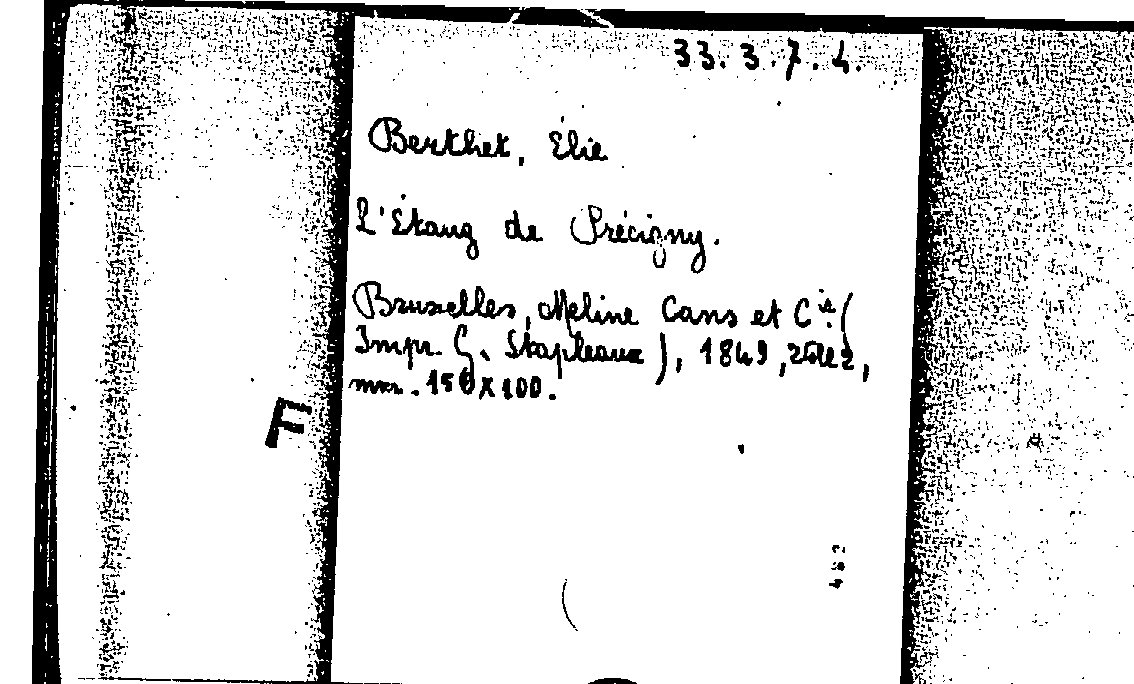 33.3.7.4.
Berthet, Élie
L'Étang de Précigny.
Bruxelles, Meline Cans et Cie. (
Impr. G. Stapleaux), 1849,
mm. 150X100.
F